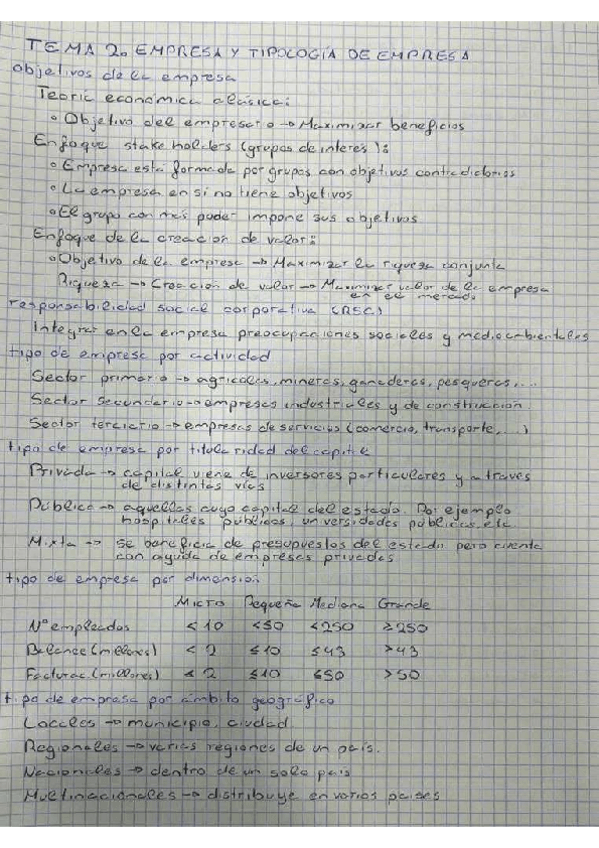 TEMA 2. EMPRESA Y TIPOLOGÍA DE EMPRESA
Objetivos de la empresa
Teoría económica clásica:
Objetivo del empresario → Maximizar beneficios
Enfoque stakeholders (grupos de interés):
Empresa está formada por grupos con objetivos contradictorios
La empresa en si no tiene objetivos
El grupo con más poder impone sus objetivos
Enfoque de la creación de valor:
Objetivo de la empresa → Maximizar la riqueza conjunta
Riqueza → Creación de valor → Maximizar valor de la empresa
en el mercado
responsabilidad social corporativa (RSC)
Integrar en la empresa preocupaciones sociales y medioambientales
tipo de empresa por actividad
Sector primario → agrícolas, mineras, ganaderas, pesqueras,...
Sector secundario → empresas industriales y de construcción.
Sector terciario → empresas de servicios (comercio, transporte,...)
tipo de empresa por titularidad del capital
Privada → capital viene de inversores particulares y a través
de distintas vías
Pública → aquellas cuyo capital del estado. Por ejemplo
hospitales públicos, universidades públicas, etc.
Mixta → se beneficia de presupuestos del estado pero cuenta
con ayuda de empresas privadas
tipo de empresa por dimensión
Micro Pequeña Mediana Grande
Nº empleados < 10 < 50 < 250 ≥ 250
Balance (millones) < 2 ≤ 10 ≤ 43 > 43
Facturac. (millones) < 2 ≤ 10 ≤ 50 > 50
tipo de empresa por ámbito geográfico
Locales → municipio, ciudad
Regionales → varias regiones de un país.
Nacionales → dentro de un solo país
Multinacionales → distribuye en varios países